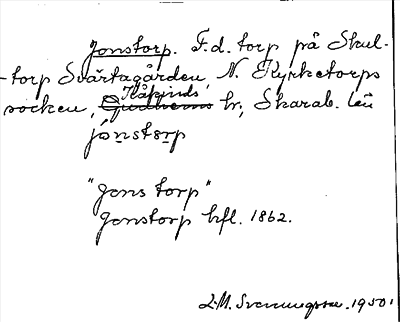 Jonstorp. F.d. torp på Skul-
torp Svärtagården, N. Kyrketorps
socken, Kåkinds hr, Skarab. län
jónstɔrp
"Jons torp"
Jonstorp hfl. 1862.
L.M. Svenungsson. 1950